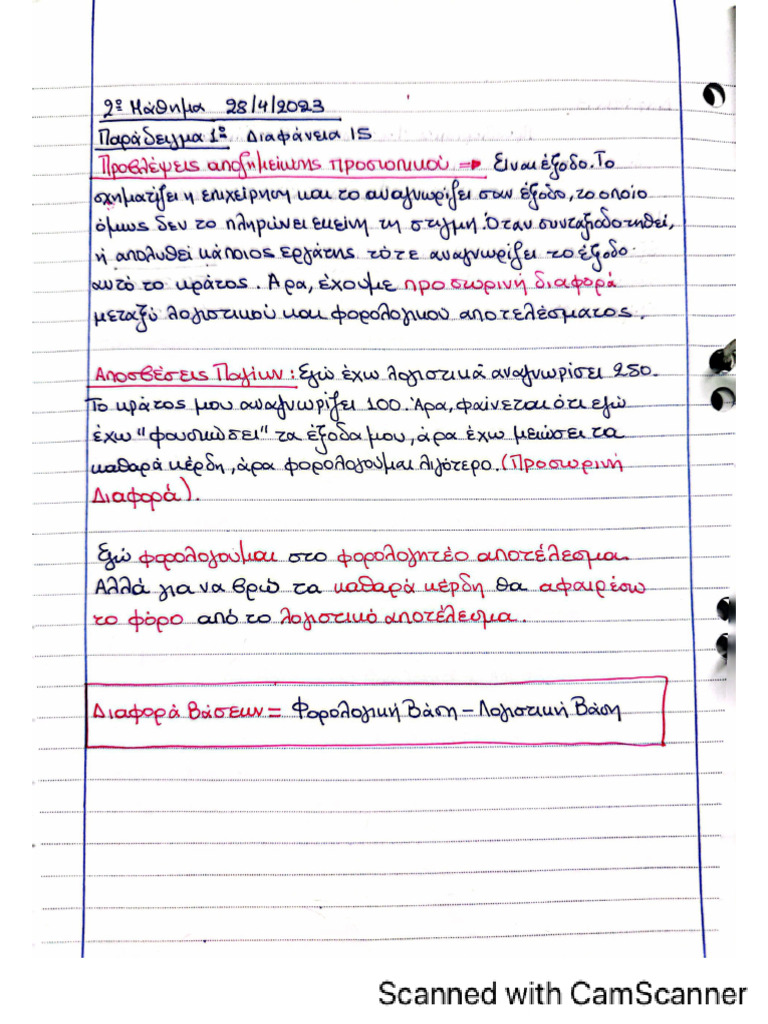 2º Μάθημα 28/4/2023
Παράδειγμα 1º Διαφάνεια 15
Προβλέψεις αποζημείωσης προσωπικού => Είναι έξοδο. Το
σχηματίζει η επιχείρηση και το αναγνωρίζει σαν έξοδο, το οποίο
όμως δεν το πληρώνει εκείνη τη στιγμή. Όταν συνταξιοδοτηθεί,
ή απολυθεί κάποιος εργάτης τότε αναγνωρίζει το έξοδο
αυτό το κράτος. Άρα, έχουμε προσωρινή διαφορά
μεταξύ λογιστικού και φορολογικού αποτελέσματος.
Αποσβέσεις Παγίων: Εγώ έχω λογιστικά αναγνωρίσει 250.
Το κράτος μου αναγνωρίζει 100. Άρα, φαίνεται ότι εγώ
έχω "φουσκώσει" τα έξοδα μου, άρα έχω μειώσει τα
καθαρά κέρδη, άρα φορολογούμαι λιγότερο. (Προσωρινή
Διαφορά).
Εγώ φορολογούμαι στο φορολογητέο αποτέλεσμα
Αλλά για να βρω τα καθαρά κέρδη θα αφαιρέσω
το φόρο από το λογιστικό αποτέλεσμα.
Διαφορά Βάσεων = Φορολογική Βάση - Λογιστική Βάση
Scanned with CamScanner